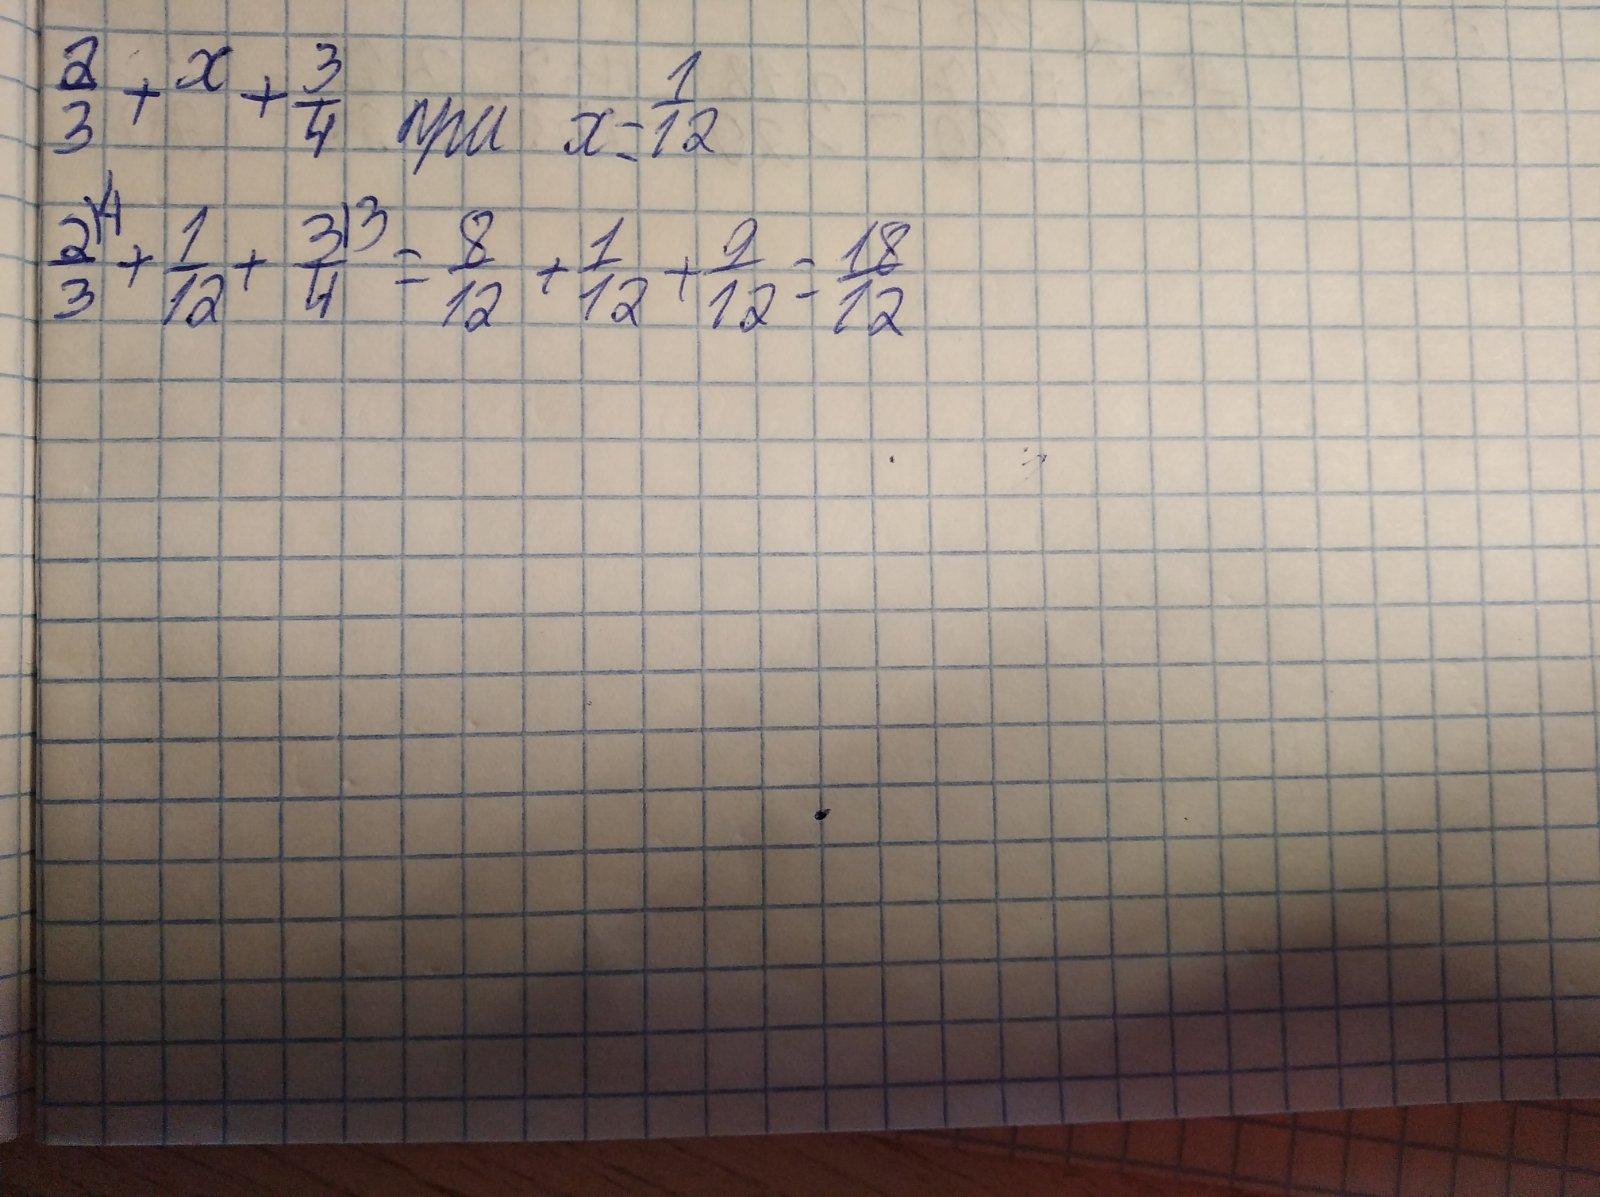 2/3 + x + 3/4 при x = 1/12
2/3\4 + 1/12 + 3/4\3 = 8/12 + 1/12 + 9/12 = 18/12